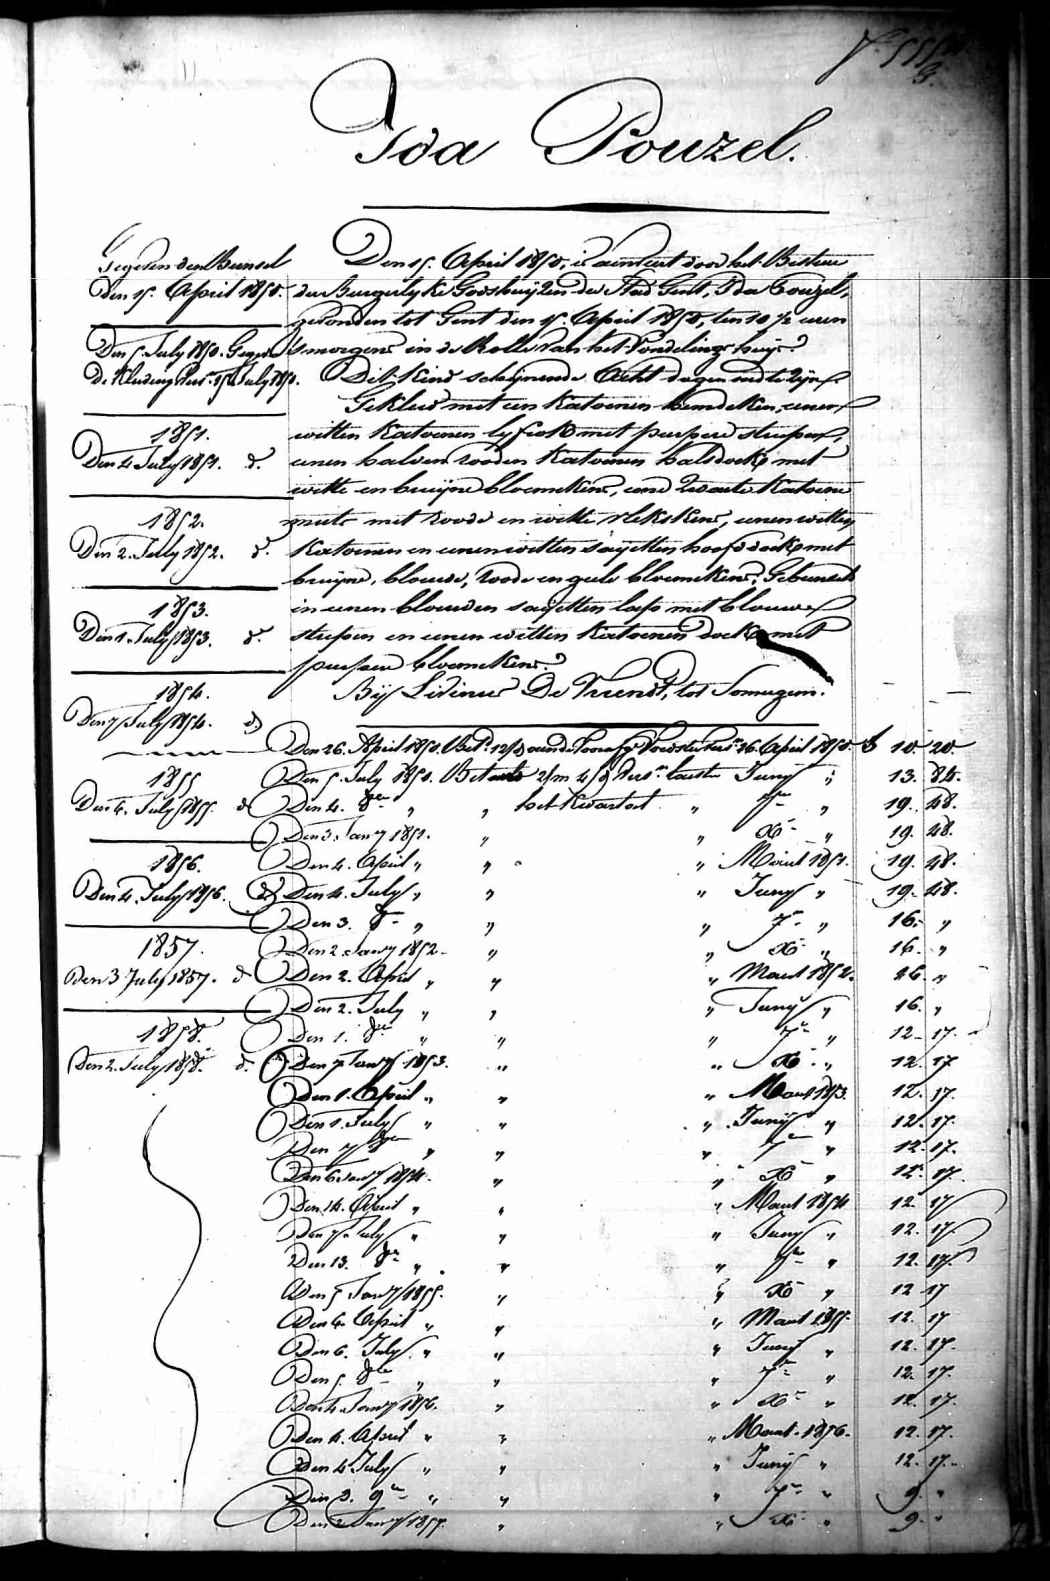 Ida Pouzel.
Gegeven den Bunsel
Den 15. April 1850.
Den 5. July 1850. Gegeven
de Kleding 15 July 1850.
1851.
Den 4. July 1851. d°.
1852.
Den 2. July 1852. d°.
1853.
Den 1. July 1853. d°.
1854.
Den 7 July 1854. d°
1855
Den 6. July 1855. d°
1856.
Den 4. July 1856. d°
1857.
Den 3 July 1857. d°
1858.
Den 2. July 1858. d°.
Den 15. April 1850, is aenveert door het Bestuer
der Burgerlyke Godshuyzen der Stad Gent, Ida Pouzel,
gevonden tot Gent den 15. April 1850, ten 10 ½ uren
's morgens in de Rolle van het Vondelinge huys.
Dit Kind schynende Acht dagen oud te zyn.
Gekleed met een katoenen hemdeken, eenen
witten katoenen lyfrok met purpere streepen,
eenen halven rooden katoenen halsdoek met
witte en bruyne bloemekens, eene zwarte katoene
muts met roode en witte vlekskens, eenen witten
katoenen en eenen witten sayetten hoofddoek met
bruyne, blauwe, roode en geele bloemekens. Gebunselt
in eenen blauwen sayetten lap met blauwe
streepen en eenen witten katoenen doek met
purpere bloemekens.
By Livinus De Vriendt, tot Somergem.
Den 26. April 1850. 26 April 1850. 10. 20.
Den 5. July 1850. Betaelt Juny " 13. 84.
Den 4. 8bre " " het Kwartael " 7bre " 19. 48.
Den 3. Janry 1851. " " Xbre " 19. 48.
Den 4. April " " " Maert 1851. 19. 48.
Den 4. July " " " Juny " 19. 48.
Den 3. 8bre " " " 7bre " 16. "
Den 2. Janry 1852. " " Xbre " 16. "
Den 2. April " " " Maert 1852. 16. "
Den 2. July " " " Juny " 16. "
Den 1. 8bre " " " 7bre " 12. 17.
Den 7 Janry 1853. " " Xbre " 12. 17.
Den 1. April " " " Maert 1853. 12. 17.
Den 1. July " " " Juny " 12. 17.
Den 7 8bre " " " 7bre " 12. 17.
Den 6 Janry 1854. " " Xbre " 12. 17.
Den 14. April " " " Maert 1854 12. 17
Den 7. July " " " Juny " 12. 17.
Den 13. 8bre " " " 7bre " 12. 17.
Den 5 Janry 1855. " " Xbre " 12 17
Den 6. April " " " Maert 1855. 12. 17
Den 6. July " " " Juny " 12. 17.
Den 5. 8bre " " " 7bre " 12. 17.
Den 4 Janry 1856. " " Xbre " 12. 17.
Den 4. April " " " Maert 1856. 12. 17.
Den 4 July " " " Juny " 12. 17.
Den 3. 9bre " " " 7bre " 9. "
Den 2 Janry 1857. " " Xbre " 9. "